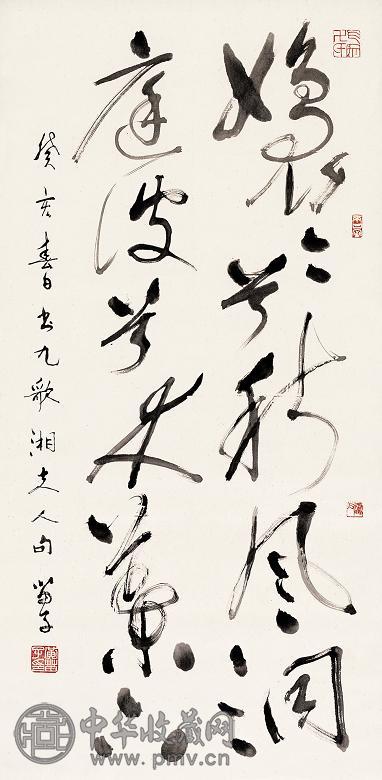 嫋々兮秋风洞
庭波兮木葉下
癸亥春日书九歌湘夫人句
中华收藏网
www.pmv.cn